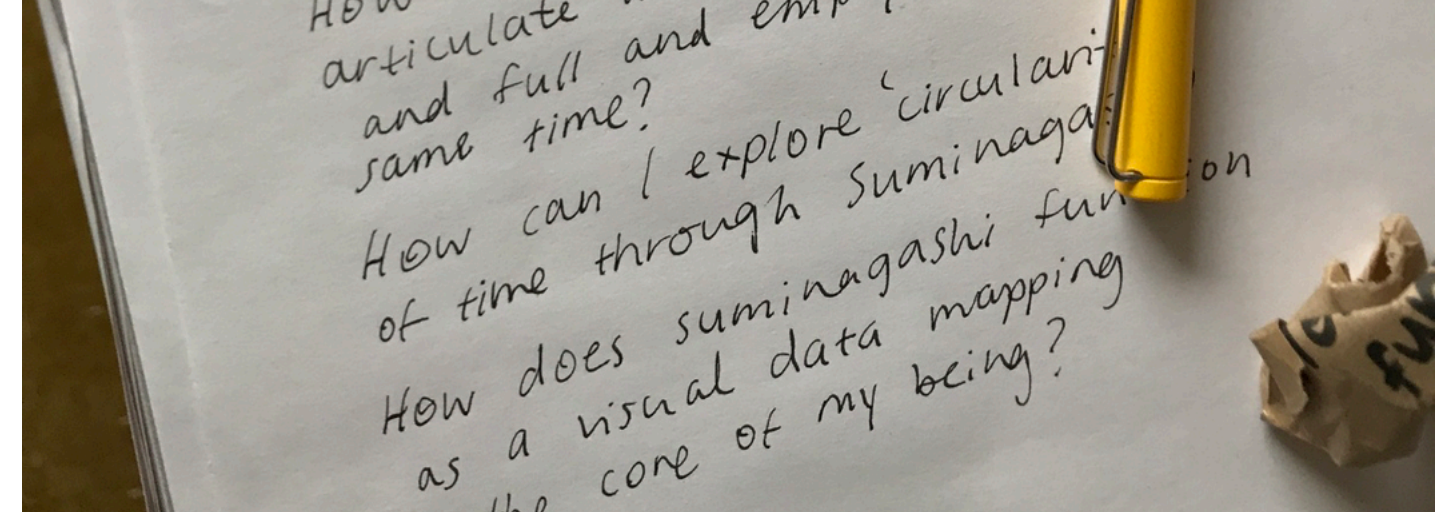 How
articulate
and full and
same time?
How can I explore 'circulari
of time through Suminaga
How does suminagashi fun on
as a visual data mapping
the core of my being?